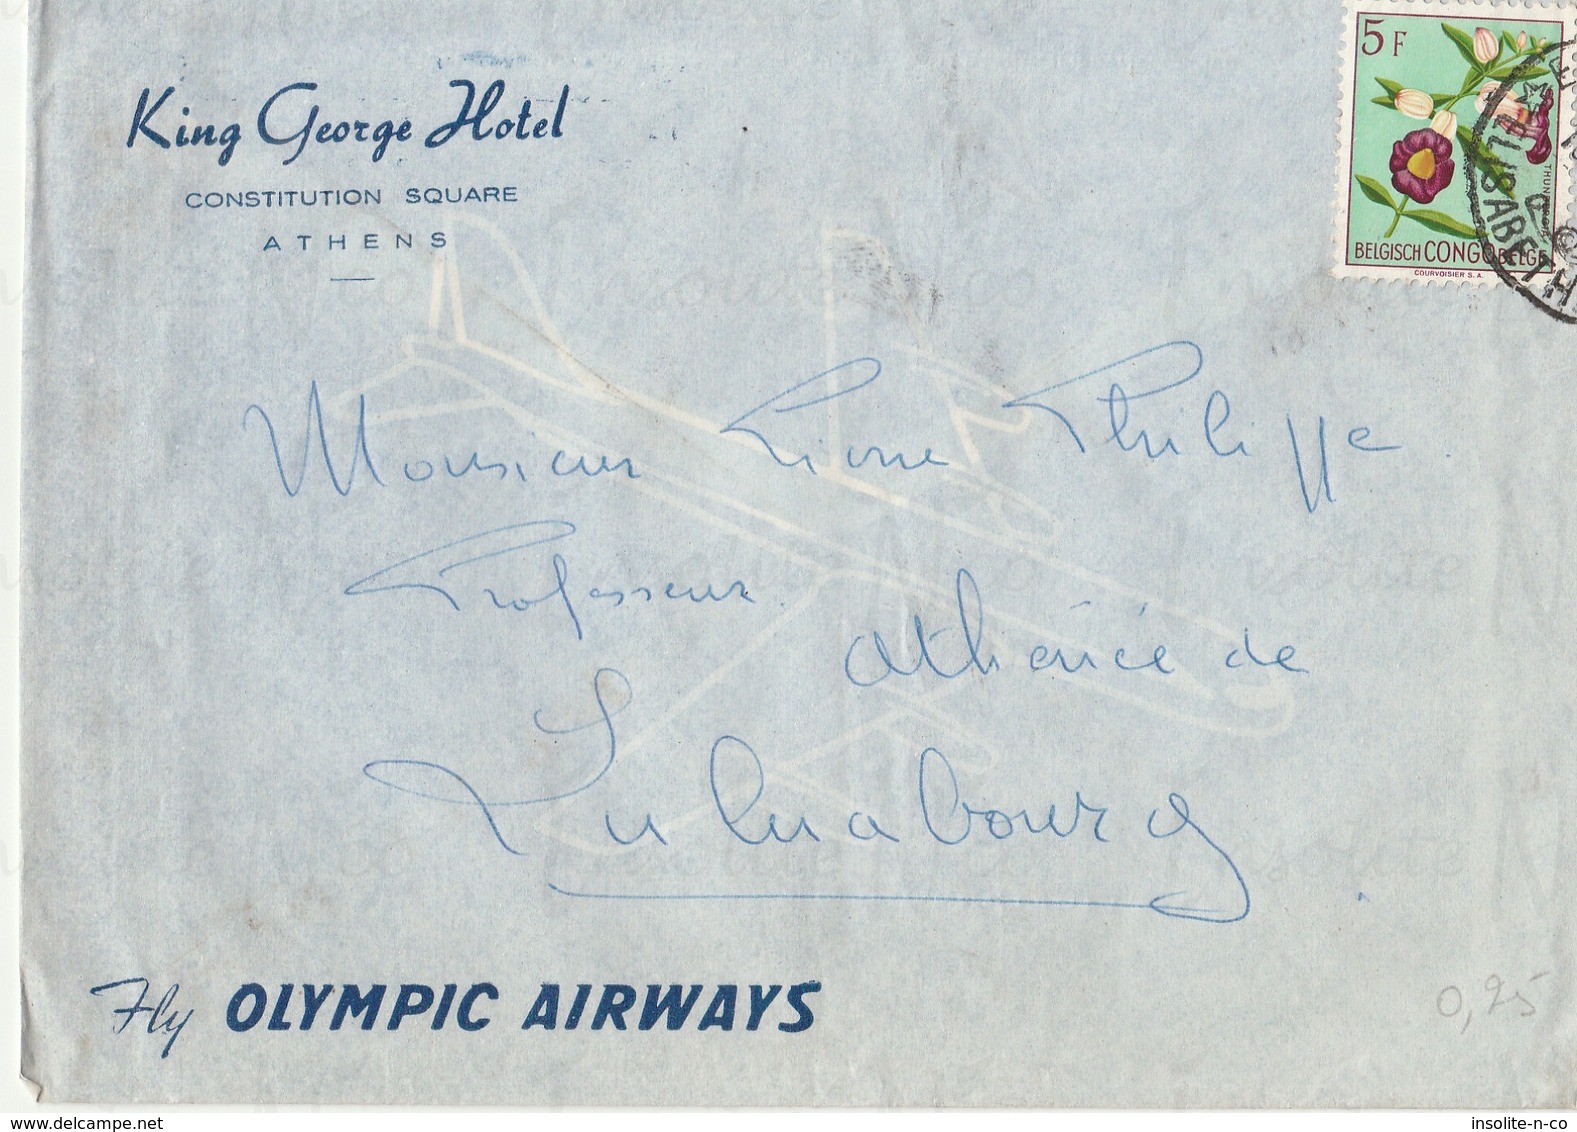 King George Hotel
CONSTITUTION SQUARE
ATHENS
5 F
THUNBERGIA
BELGISCH CONGO BELGE
COURVOISIER S. A.
ELISABETHV
Monsieur Pierre Philippe
Professeur
Athénée de
Luluabourg
Fly OLYMPIC AIRWAYS
0,25
insolite-n-co